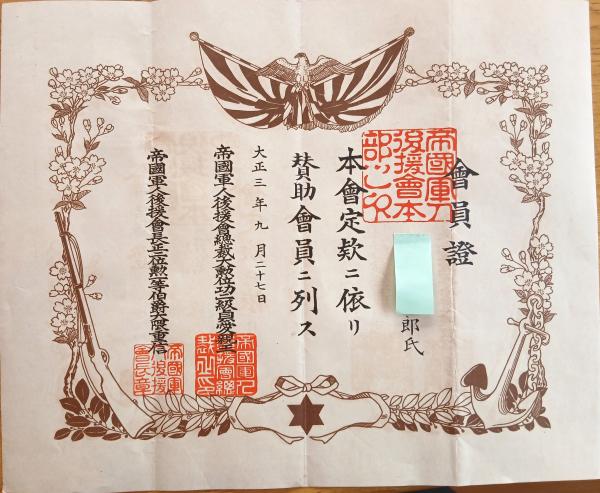 會員證
郎氏
本會定欵ニ依リ
賛助會員ニ列ス
大正三年九月二十七日
帝國軍人後援會總裁大勲位功二級貞愛親王
帝國軍人後援會長正二位勲一等伯爵大隈重信
帝國軍人後援會本部之印
帝國軍人後援會總裁之印
帝國軍人後援會會長之章